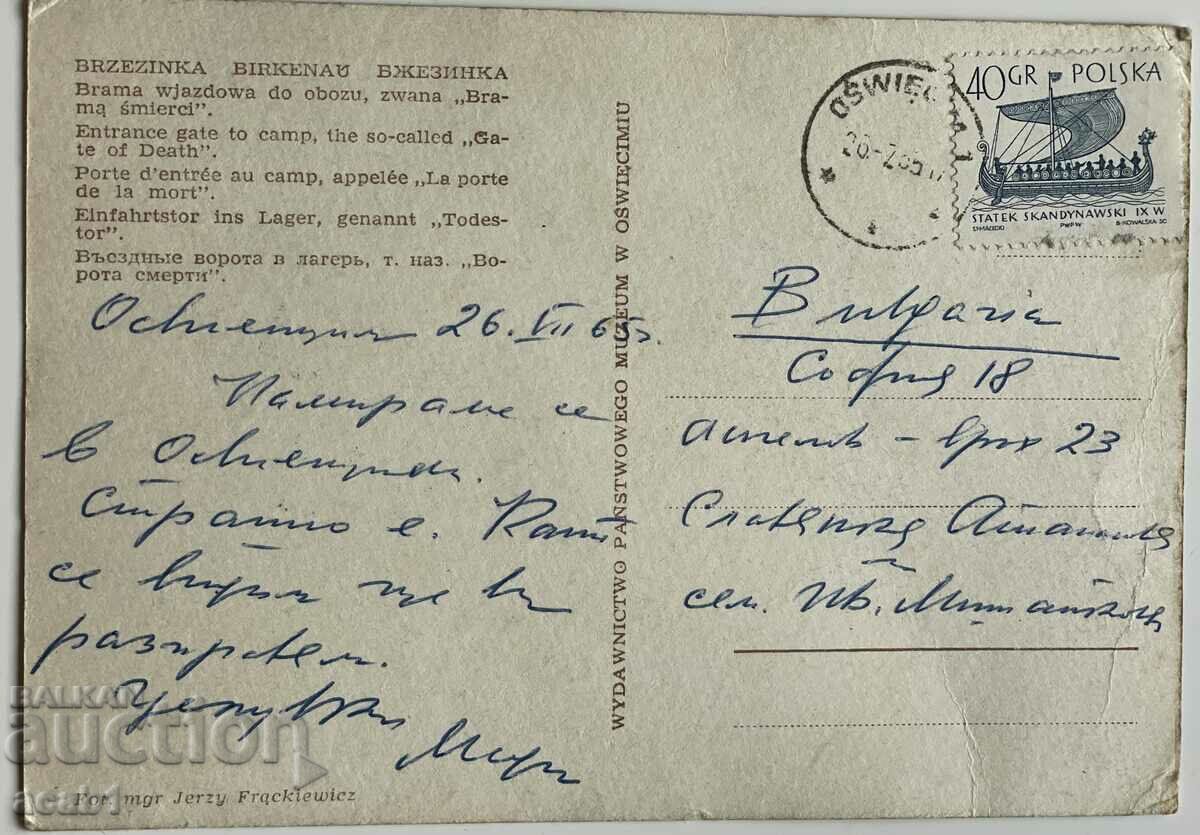 BRZEZINKA BIRKENAU БЖЕЗИНКА
Brama wjazdowa do obozu, zwana „Bra-
mą śmierci”.
Entrance gate to camp, the so-called „Ga-
te of Death”.
Porte d'entrée au camp, appelée „La porte
de la mort”.
Einfahrtstor ins Lager, genannt „Todes-
tor”.
Въездные ворота в лагерь, т. наз. „Во-
рота смерти”.
Освиенцим 26.VII 65г.
Намираме се
в Освиенцим.
Страшно е. Като
се видим ще ви
разправям.
Целувки
Мери
Fot. mgr Jerzy Frąckiewicz
WYDAWNICTWO PAŃSTWOWEGO MUZEUM W OŚWIĘCIMIU
OŚWIĘC 1
40GR POLSKA
STATEK SKANDYNAWSKI IX W
S.MAŁECKI PWPW B.KOWALSKA SC
Bulgaria
София 18
връх 23
Славенка
сем. Ив.
BALKAN
auction
acab1